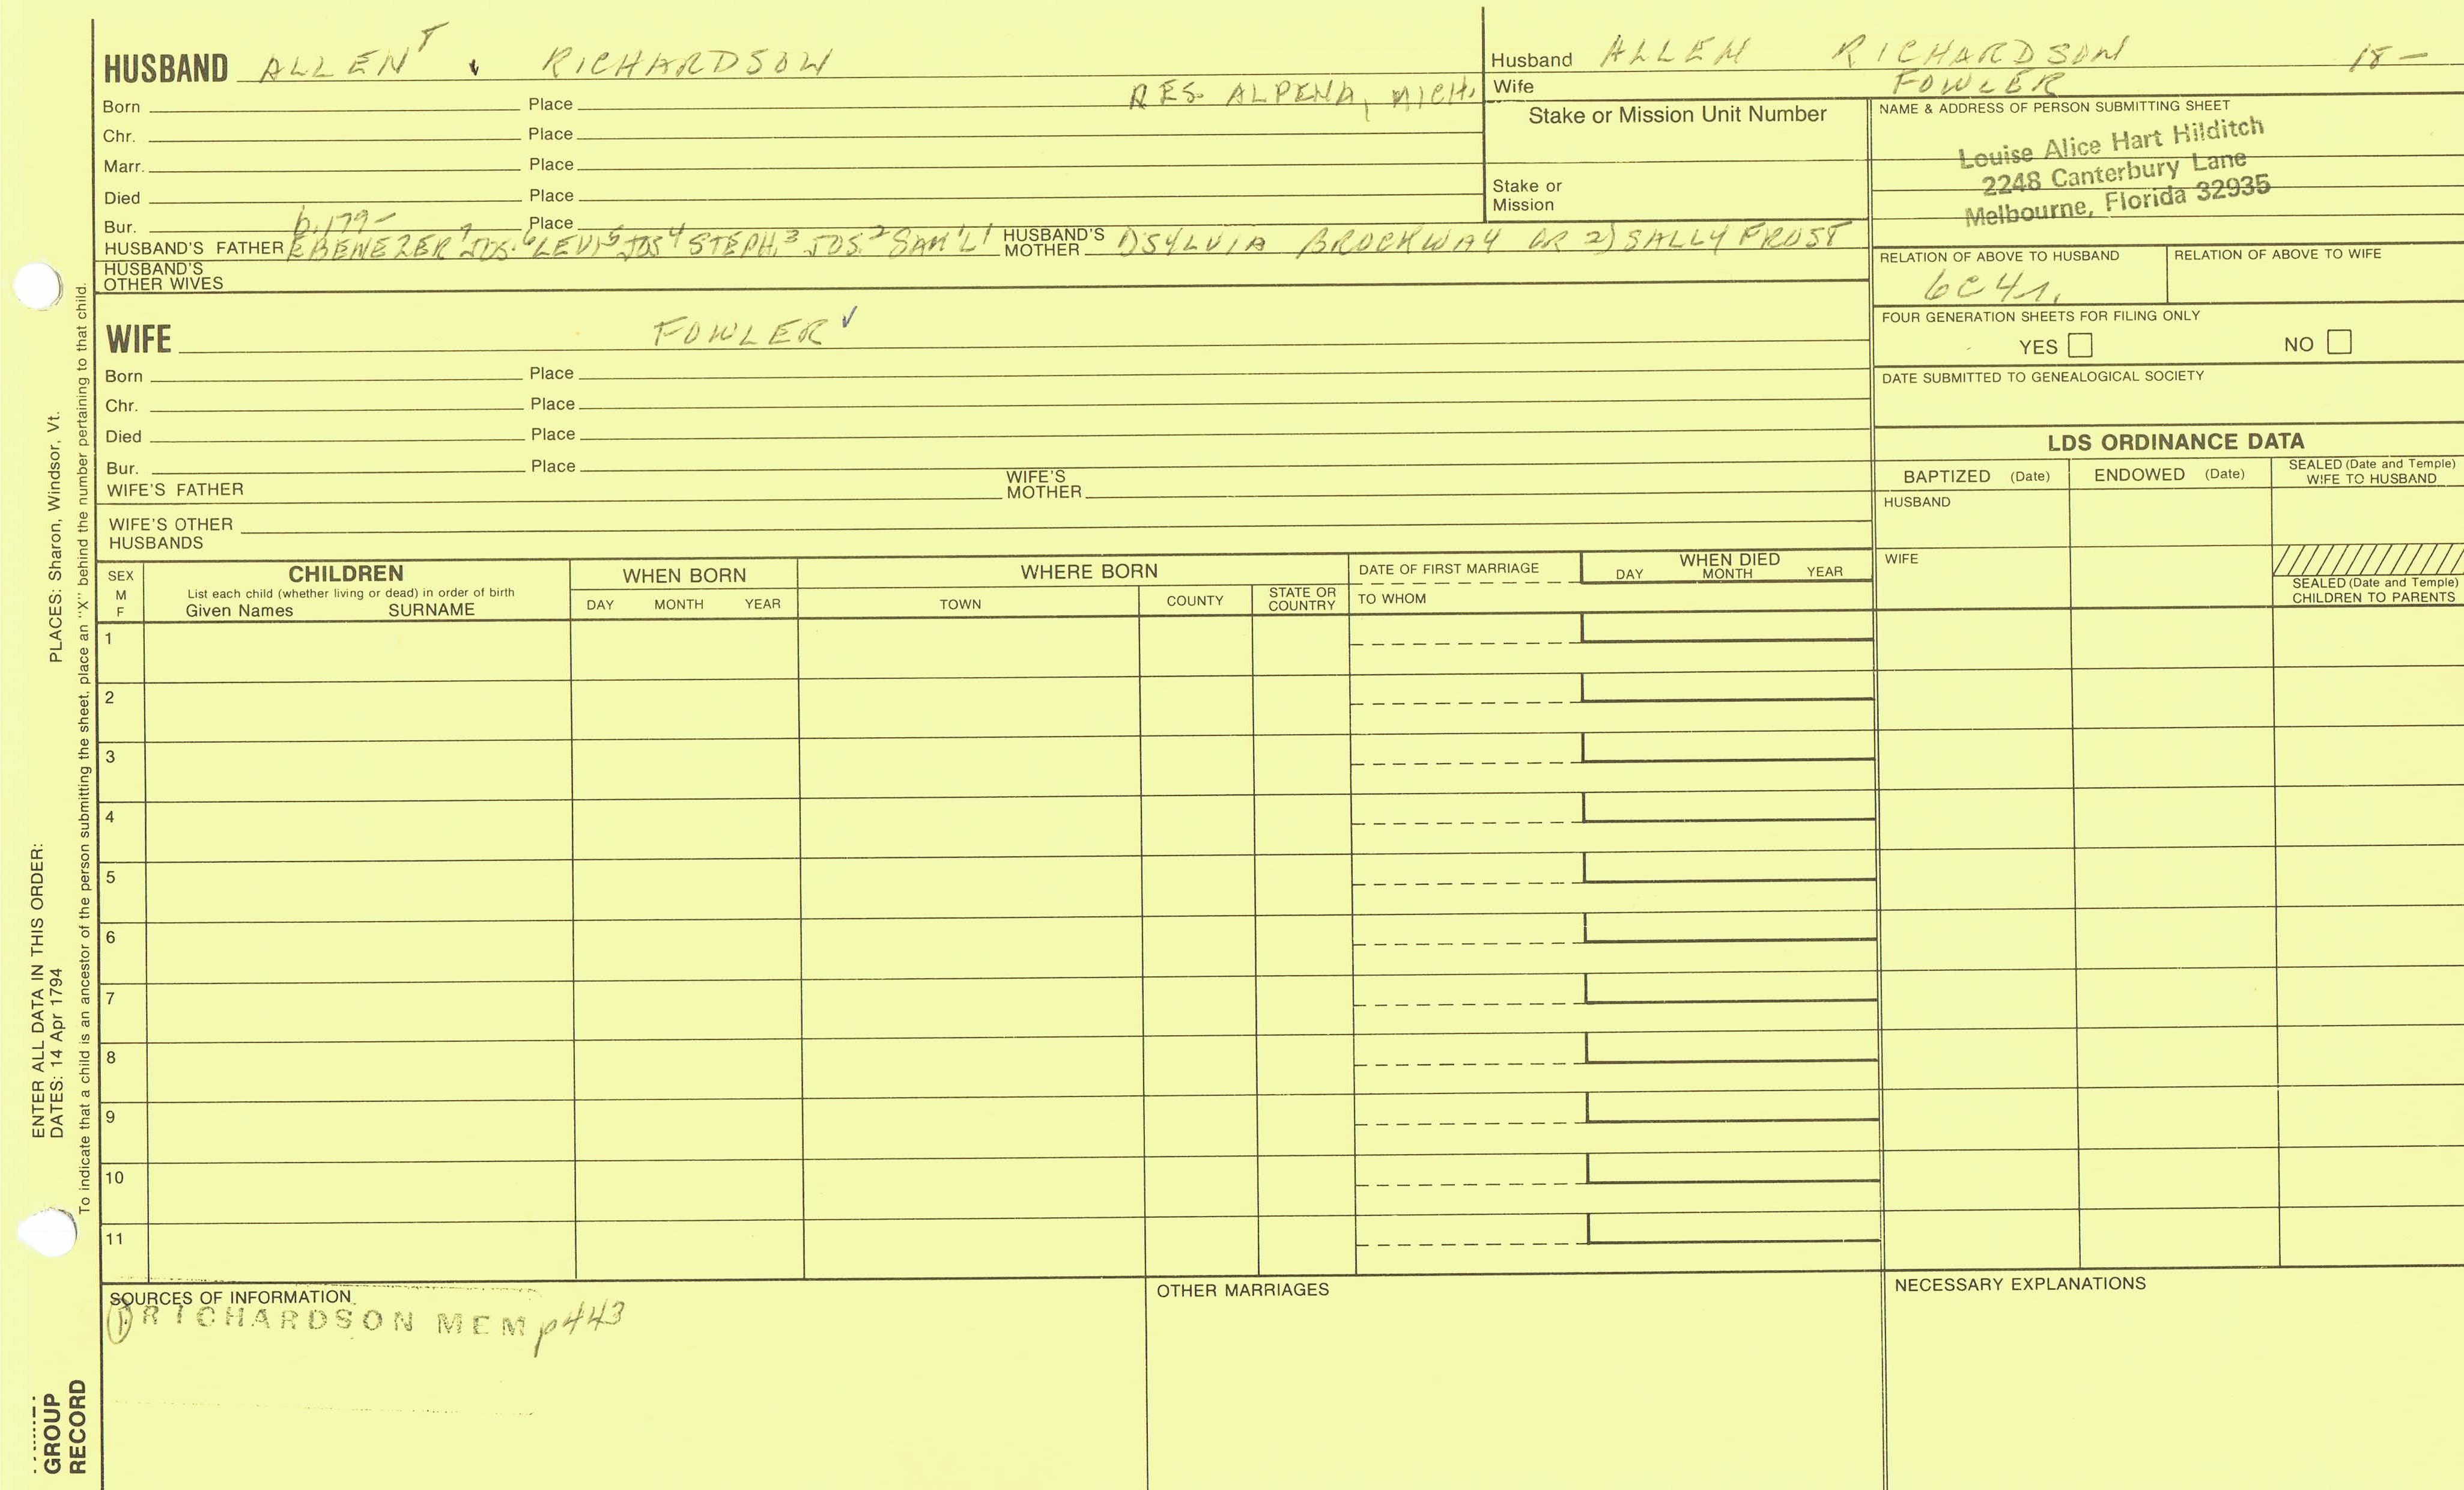 HUSBAND ALLEN RICHARDSON
RES. ALPENA, MICH.
Born Place
Chr. Place
Marr. Place
Died Place
Bur. Place
b. 179-
HUSBAND'S FATHER EBENEZER7 JOS.6 LEVI5 JOS4 STEPH.3 JOS.2 SAM'L1 HUSBAND'S MOTHER 1) SYLVIA BROCKWAY OR 2) SALLY FROST
HUSBAND'S
OTHER WIVES
WIFE FOWLER ✓
Born Place
Chr. Place
Died Place
Bur. Place
WIFE'S FATHER WIFE'S MOTHER
WIFE'S OTHER
HUSBANDS
Husband ALLEN RICHARDSON 18-
Wife FOWLER
Stake or Mission Unit Number
Stake or
Mission
NAME & ADDRESS OF PERSON SUBMITTING SHEET
Louise Alice Hart Hilditch
2248 Canterbury Lane
Melbourne, Florida 32935
RELATION OF ABOVE TO HUSBAND RELATION OF ABOVE TO WIFE
6C4r.
FOUR GENERATION SHEETS FOR FILING ONLY
YES NO
DATE SUBMITTED TO GENEALOGICAL SOCIETY
LDS ORDINANCE DATA
BAPTIZED (Date) ENDOWED (Date) SEALED (Date and Temple)
WIFE TO HUSBAND
HUSBAND
WIFE
SEALED (Date and Temple)
CHILDREN TO PARENTS
SEX
M
F
CHILDREN
List each child (whether living or dead) in order of birth
Given Names SURNAME
WHEN BORN
DAY MONTH YEAR
WHERE BORN
TOWN COUNTY STATE OR
COUNTRY
DATE OF FIRST MARRIAGE
TO WHOM
WHEN DIED
DAY MONTH YEAR
1
2
3
4
5
6
7
8
9
10
11
SOURCES OF INFORMATION
① RICHARDSON MEM p443
OTHER MARRIAGES
NECESSARY EXPLANATIONS
ENTER ALL DATA IN THIS ORDER:
DATES: 14 Apr 1794 PLACES: Sharon, Windsor, Vt.
To indicate that a child is an ancestor of the person submitting the sheet, place an "X" behind the number pertaining to that child.
GROUP
RECORD